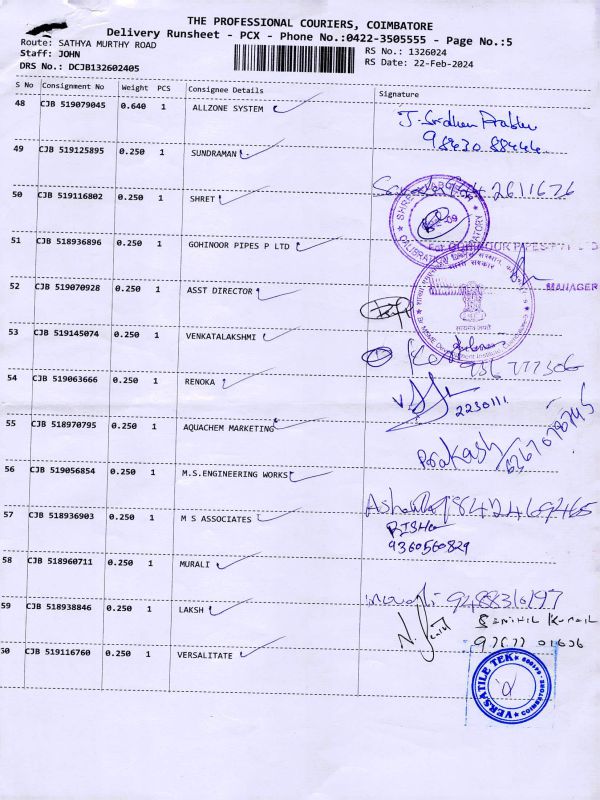 THE PROFESSIONAL COURIERS, COIMBATORE
Delivery Runsheet - PCX - Phone No.:0422-3505555 - Page No.:5
Route: SATHYA MURTHY ROAD
RS No.: 1326024
Staff: JOHN
RS Date: 22-Feb-2024
DRS No.: DCJB132602405
S No Consignment No Weight PCS Consignee Details Signature
48 CJB 519079045 0.640 1 ALLZONE SYSTEM
98430 88444
49 CJB 519125895 0.250 1 SUNDRAMAN
2611676
50 CJB 519116802 0.250 1 SHRET
51 CJB 518936896 0.250 1 GOHINOOR PIPES P LTD
MANAGER
52 CJB 519070928 0.250 1 ASST DIRECTOR
53 CJB 519145074 0.250 1 VENKATALAKSHMI
54 CJB 519063666 0.250 1 RENOKA
2230111
55 CJB 518970795 0.250 1 AQUACHEM MARKETING
Prakash
56 CJB 519056854 0.250 1 M.S.ENGINEERING WORKS
9842469465
57 CJB 518936903 0.250 1 M S ASSOCIATES
9360560829
58 CJB 518960711 0.250 1 MURALI
59 CJB 518938846 0.250 1 LAKSH
60 CJB 519116760 0.250 1 VERSALITATE
VERSATILE TEK
COIMBATORE